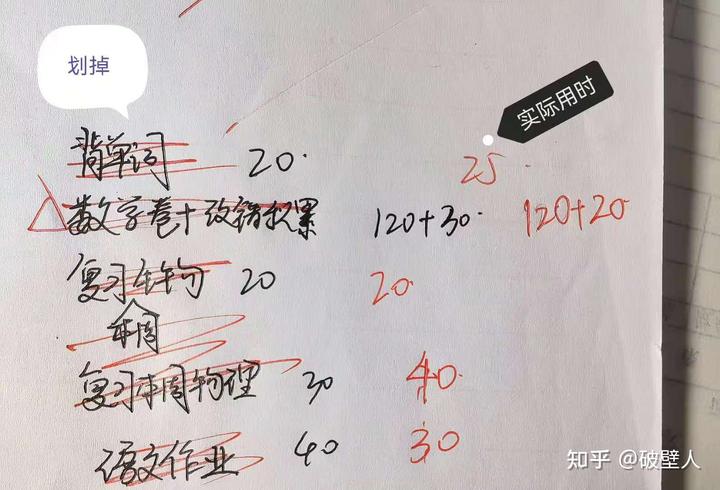 划掉
实际用时
背单词 20. 25.
数学卷+改错积累 120+30. 120+20
复习生物 20 20.
本周
复习本周物理 30 40.
语文作业 40 30
知乎 @破壁人